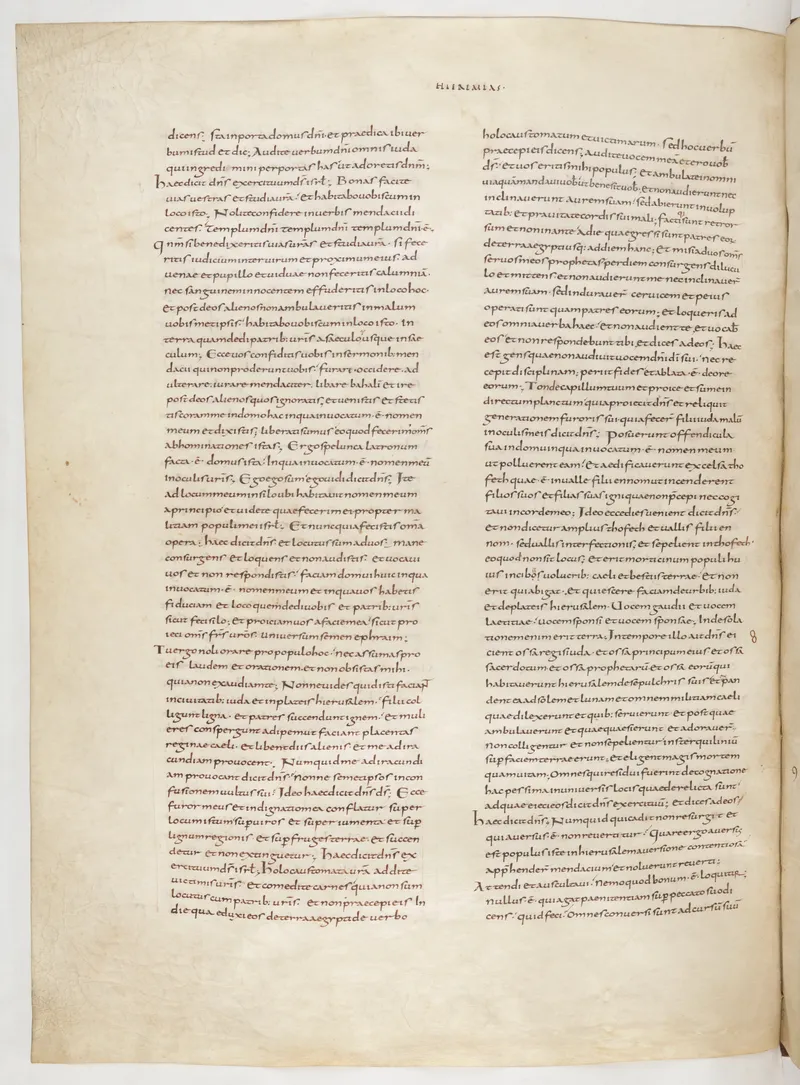 HIEREMIAS·
dicens; sta in porta domus dn̄i· et praedica ibi uer
bum istud et dic; Audite uerbum dn̄i omnis iuda
qui ingredimini per portas has ut adoretis dn̄m;
Haec dicit dn̄s exercituum d̄s isrl; Bonas facite
uias uestras et studia ur̄a· et habitabo uobiscum in
loco isto; Nolite confidere in uerbis mendacii di
centes; templum dn̄i templum dn̄i templum dn̄i ē·
Qnm̄ si benedixeritis uias ur̄as et studia ur̄a· si fece
ritis iudicium inter uirum et proximum eius· ad
uenae et pupillo et uiduae non feceritis calumniā·
nec sanguinem innocentem effuderitis in loco hoc·
et post deos alienos non ambulaueritis in malum
uobismetipsis· habitabo uobiscum in loco isto· in
terra quam dedi patrib; ur̄is a saeculo usque in sae
culum; Ecce uos confiditis uobis in sermonib; men
dacii qui non proderunt uobis· furari· occidere· ad
ulterare· iurare mendaciter· libare bahali· et ire
post deos alienos quos ignoratis; et uenistis et stetis
tis coram me in domo hac in qua inuocatum ē nomen
meum et dixistis; liberati sumus eo quod fecerim om̄s
abhominationes istas; Ergo spelunca latronum
facta ē domus ista· In qua inuocatum ē nomen meū
in oculis ur̄is; Ego ego sum ego uidi dicit dn̄s; Ite
ad locum meum in silo ubi habitauit nomen meum
a principio et uidete quae fecerim ei propter ma
litiam populi mei isrl; Et nunc quia fecistis om̄a
opera; haec dicit dn̄s et locutus sum ad uos; mane
consurgens et loquens et non audistis; et uocaui
uos et non respondistis· faciam domui huic in qua
inuocatum ē nomen meum et in qua uos habetis
fiduciam et loco quem dedi uobis et patrib; ur̄is
sicut feci silo; et proiciam uos a facie mea· sicut pro
ieci om̄s fr̄s ur̄os uniuersum semen ephraim;
Tu ergo noli orare pro populo hoc· nec assumas pro
eis laudem et orationem· et non obsistas mihi·
quia non exaudiam te; Nonne uides quid isti faciant
in ciuitatib; iuda et in plateis hierusalem· filii col
ligunt ligna· et patres succendunt ignem· et muli
eres conspergunt adipem ut faciant placentas
reginae caeli· et libent diis alienis et me ad ira
cundiam prouocent; Numquid me ad iracundi
am prouocant dicit dn̄s· nonne semetipsos in con
fusionem uultus sui; Ideo haec dicit dn̄s d̄s; Ecce
furor meus et indignatio mea conflatur super
locum istum sup uiros et super iumenta· et sup
lignum regionis et sup fruges terrae· et succen
detur et non extinguetur; Haec dicit dn̄s ex
ercituum d̄s isrl; Holocaustomata ur̄a addite
uictimis ur̄is· et comedite carnes quia non sum
locutus cum patrib; ur̄is et non praecepi eis In
die qua eduxi eos de terra aegypti de uerbo
holocaustomatum et uictimarum· sed hoc uerbū
praecepi eis dicens; Audite uocem meā et ero uob
d̄s· et uos eritis mihi populus; et ambulate in omni
uia quam mandaui uobis ut bene sit uob; et non audierunt nec
inclinauerunt aurem suam· sed abierunt in uolup
tatib; et prauitate cordis sui mali; factiq; sunt retror
sum et non in ante· A die qua egressi sunt patres eor̄
de terra aegypti usq; ad diem hanc; et misi ad uos om̄s
seruos meos prophetas per diem consurgens dilucu
lo et mittens et non audierunt me nec inclinauer̄
aurem suam· sed indurauer̄ ceruicem et peius
operati sunt quam patres eorum; et loqueris ad
eos omnia uerba haec· et non audient te· et uocab
eos et non respondebunt tibi· et dices ad eos; Haec
est gens quae non audiuit uocem dn̄i di sui· nec re
cepit disciplinam; periit fides et ablata ē de ore
eorum; Tonde capillum tuum et proice et sume in
directum planctum quia proiecit dn̄s et reliquit
generationem furoris sui quia fecer̄ filii iuda malū
in oculis meis dicit dn̄s; Posuerunt offendicula
sua in domu in qua inuocatum ē nomen meum
ut polluerent eam· et aedificauerunt excelsa tho
feth quae ē in ualle filii ennom ut incenderent
filios suos et filias suas igni quae non p̄cepi nec cogi
taui in corde meo; Ideo ecce dies uenient dicit dn̄s·
et non dicetur amplius thofeth et uallis filii en
nom· sed uallis interfectionis; et sepelient in thofeth·
eo quod non sit locus; et erit morticinum populi hu
ius in cibos uolucrib; caeli et bestiis terrae· et non
erit qui abigat· et quiescere faciam de urbib; iuda
et de plateis hierusalem· Uocem gaudii et uocem
laetitiae· uocem sponsi et uocem sponsae; In desola
tionem enim erit terra; In tempore illo ait dn̄s ei
cient ossa regis iuda· et ossa principum eius et ossa
sacerdotum et ossa prophetarū et ossa eorū qui
habitauerunt hierusalem de sepulchris suis et pan
dent ea ad solem et lunam et omnem militiam caeli
quae dilexerunt et quib; seruierunt et post quae
ambulauerunt et quae quaesierunt et adorauer̄·
non colligentur et non sepelientur in sterquiliniū
sup faciem terrae erunt; et eligent magis mortem
quam uitam; Omnes qui residui fuerint de cognatione
hac pessima in uniuersis locis quae derelicta sunt·
ad quae eieci eos dicit dn̄s exercituū; et dices ad eos;
Haec dicit dn̄s; Numquid qui cadit non resurget et
qui auersus ē non reuertitur· Quare ergo auersus
est populus iste in hierusalem auersione contentiosa·
App̄hender̄ mendacium et noluerunt reuerti;
Attendi et auscultaui· nemo quod bonum ē loquitur;
nullus ē qui agat paenitentiam sup peccato suo di
cens· quid feci· Omnes conuersi sunt ad cursū suū